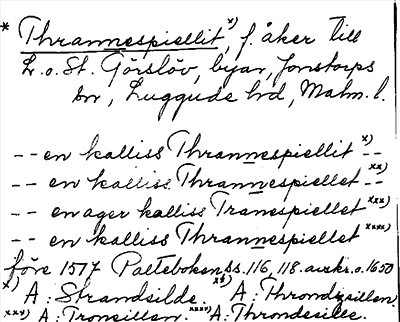 * Thrannespiellit x), f. åker till
L. o. St. Görslöv, byar, Jonstorps
sn, Luggude hd, Malm. l.
-- en kalliss Thrannespiellit x) --
-- en kalliss Thrannespiellet xx) --
-- en ager kalliss Tranespiellet xxx)
-- en kalliss Thrannespiellet xxxx)
före 1577 Palteboken ss. 116, 118. avskr. o. 1650
x) A: Strandsilde. xx) A: Throndisillen.
xxx) A: Tronsillen. xxxx) A: Throndesille.